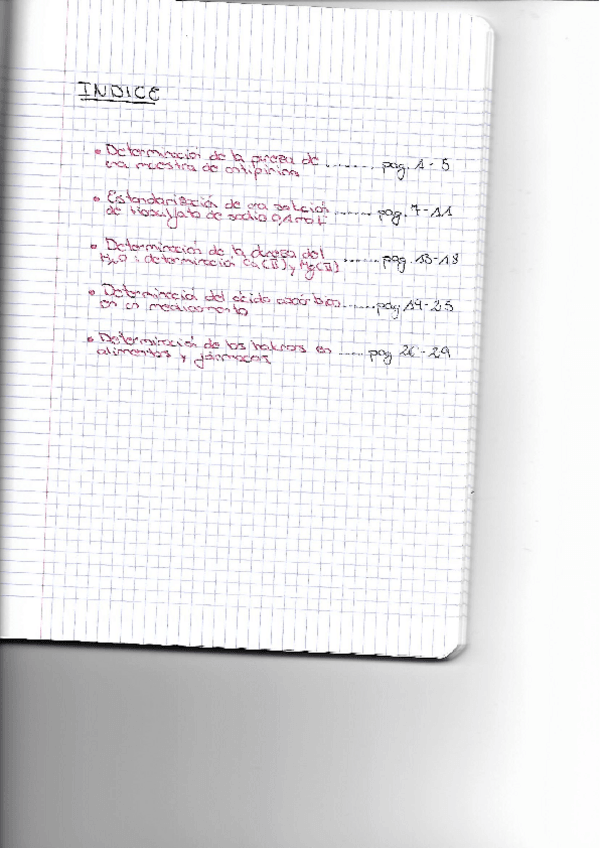 INDICE
• Determinación de la pureza de ........ pag. 1 - 5
una muestra de antipirina
• Estandarización de una solución ...... pag. 7-11
de tiosulfato de sodio 0,1 mol/L
• Determinación de la dureza del
H₂O : determinación Ca(II) y Mg(II) ...... pag. 13-18
• Determinación del ácido ascórbico ...... pag 19-25
en un medicamento
• Determinación de los haluros en ..... pag 26-29
alimentos y fármacos